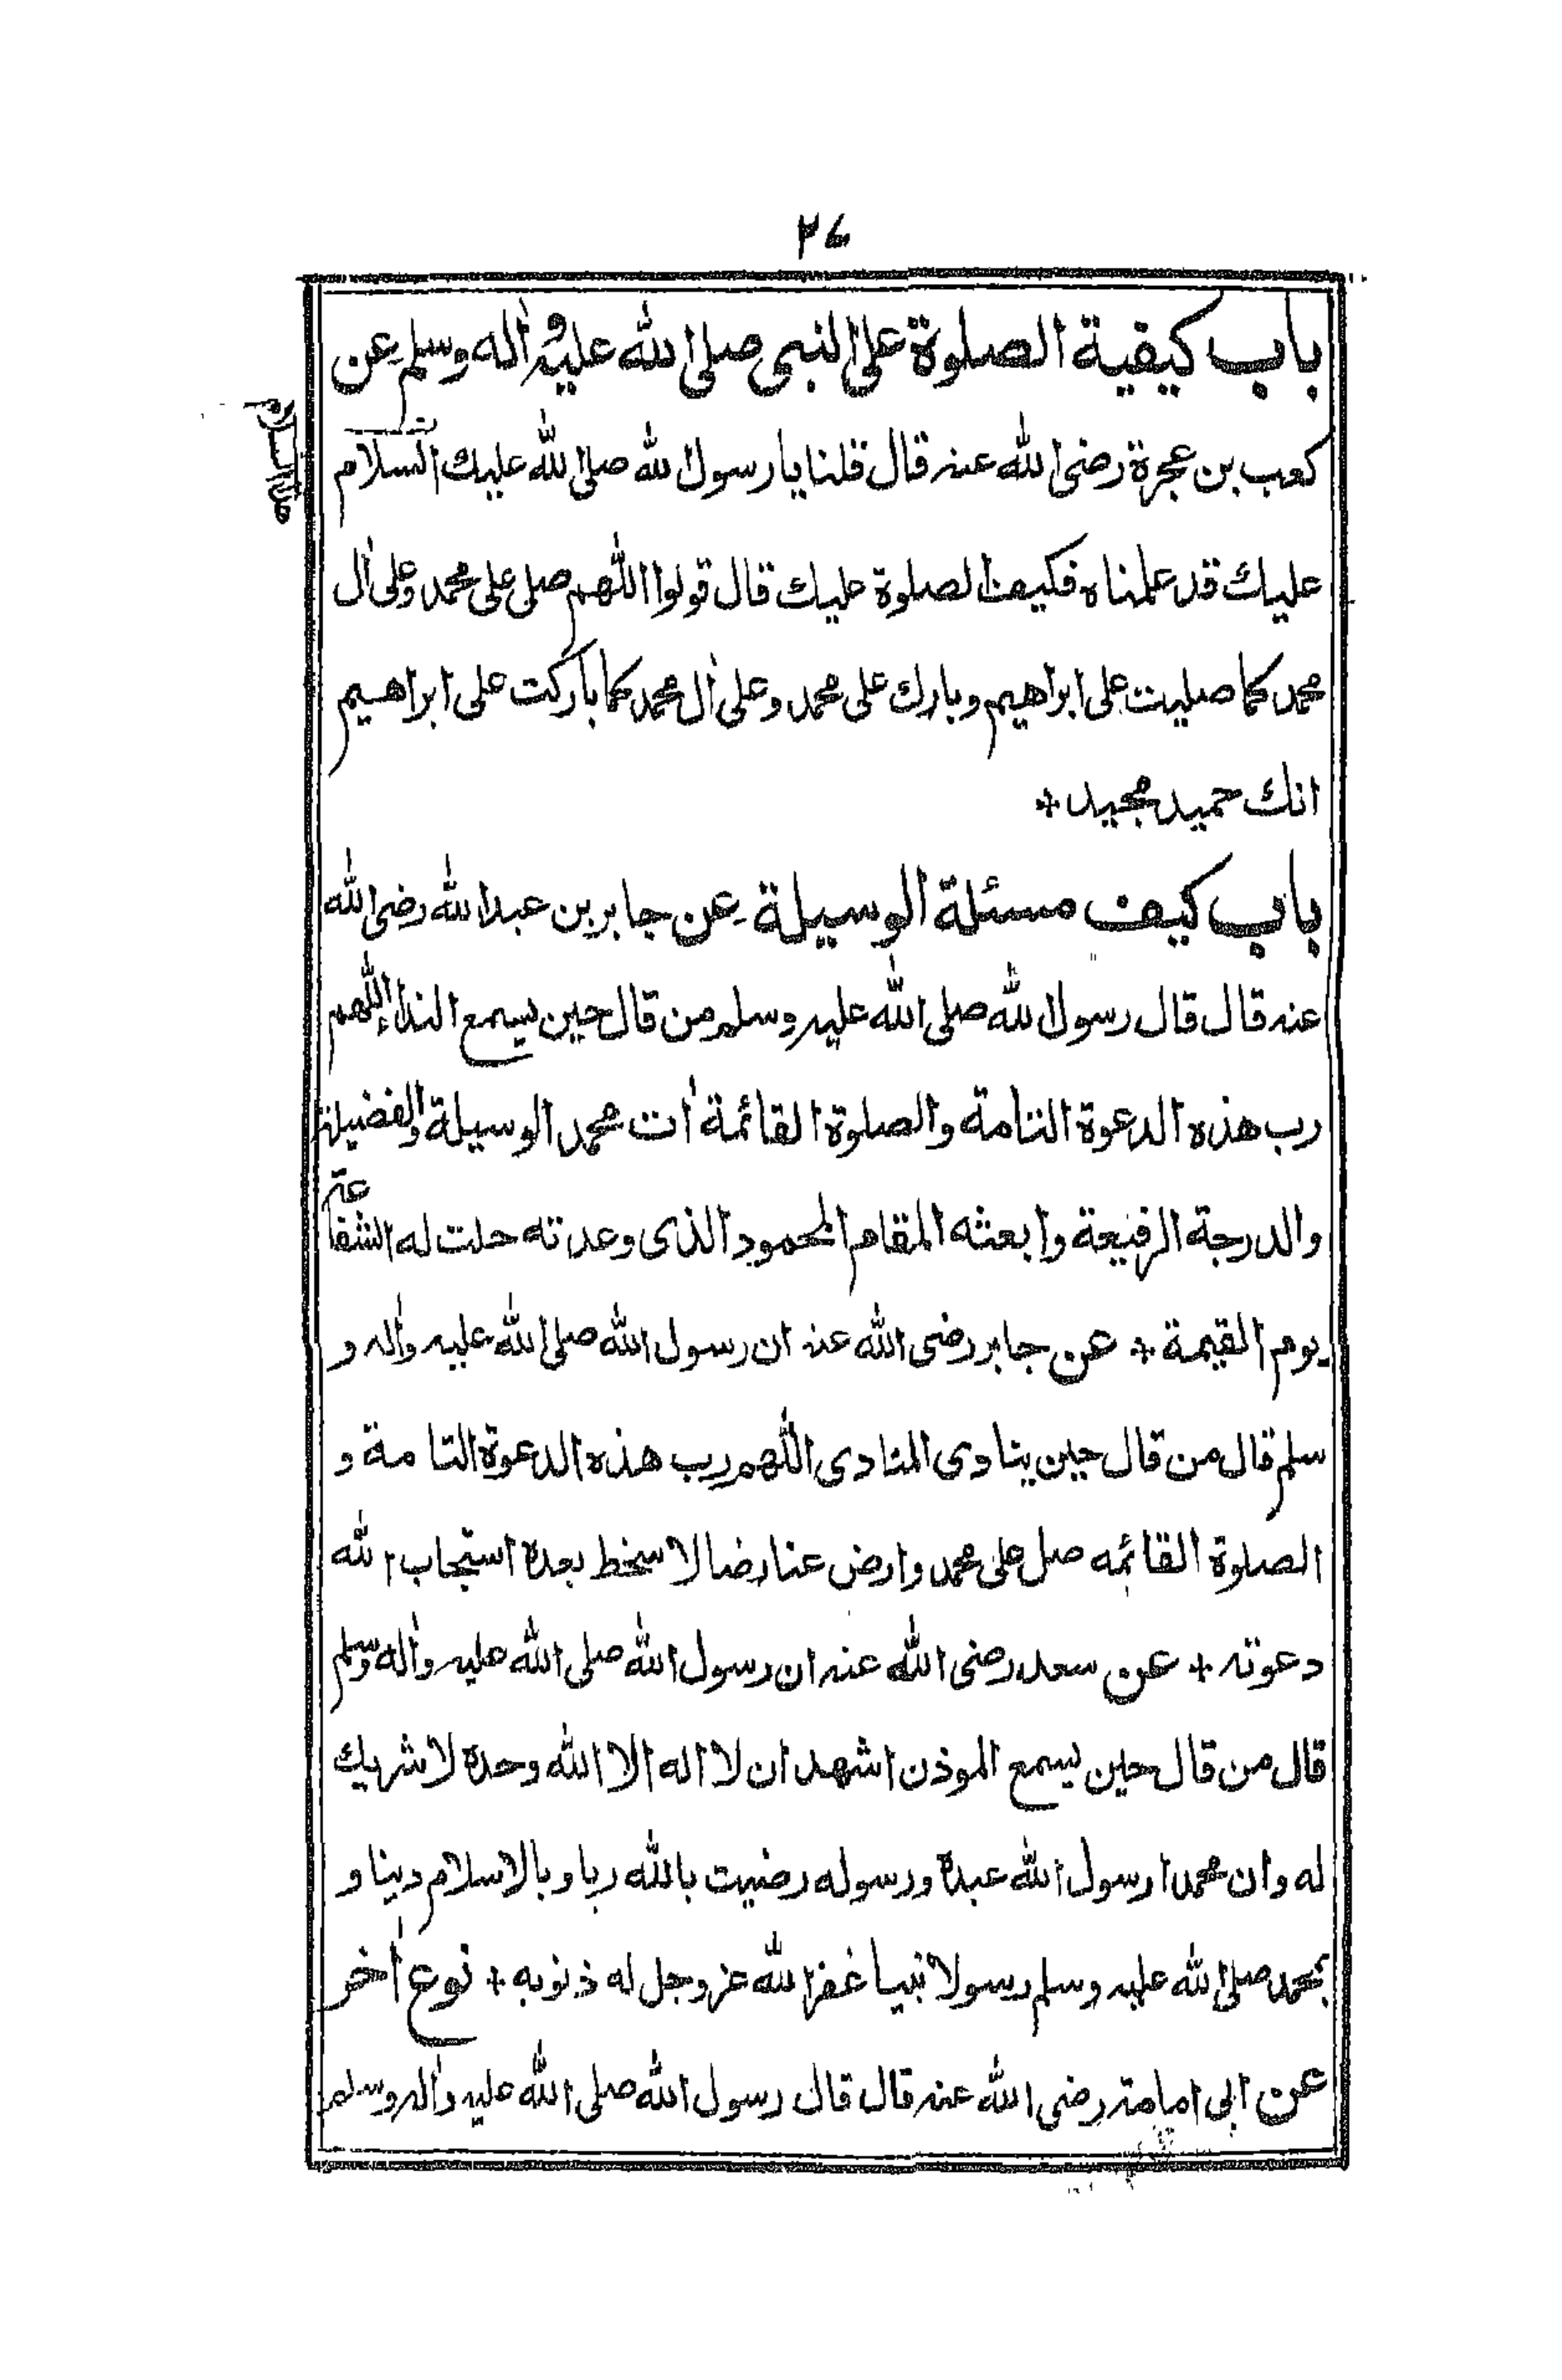 ٢٤
باب كيفية الصلوة على النبى صلى الله عليه واٰله وسلم عن
كعب بن عجرة رضى الله عنه قال قلنا يا رسول الله صلى الله عليك السلام
عليك قد علمناه فكيف الصلوة عليك قال قولوا اللّٰهم صلى على محمد وعلى اٰل
محمد كما صليت على ابراهيم وبارك على محمد وعلى اٰل محمد كما باركت على ابراهيم
انك حميد مجيد +
باب كيف مسئلة الوسيلة عن جابر بن عبد الله رضى الله
عنه قال قال رسول الله صلى الله عليه وسلم من قال حين يسمع النداء اللّٰهم
رب هذه الدعوة التامة والصلوة القائمة اٰت محمد الوسيلة والفضيلة
والدرجة الرفيعة وابعثه المقام المحمود الذى وعدته حلت له الشفاعة
يوم القيمة + عن جابر رضى الله عنه ان رسول الله صلى الله عليه واٰله و
سلم قال من قال حين ينادى المنادى اللّٰهم رب هذه الدعوة التامة و
الصلوة القائمه صل على محمد وارض عنا رضا لا سخط بعده استجاب الله
دعوته + عن سعد رضى الله عنه ان رسول الله صلى الله عليه واٰله وسلم
قال من قال حين يسمع الموذن اشهد ان لا اله الا الله وحده لا شريك
له وان محمدا رسول الله عبده ورسوله رضيت بالله ربا وبالاسلام دينا و
بمحمد صلى الله عليه وسلم رسولا نبيا غفر الله عز وجل له ذنوبه + نوع اٰخر
عن ابى امامة رضى الله عنه قال قال رسول الله صلى الله عليه واٰله وسلم